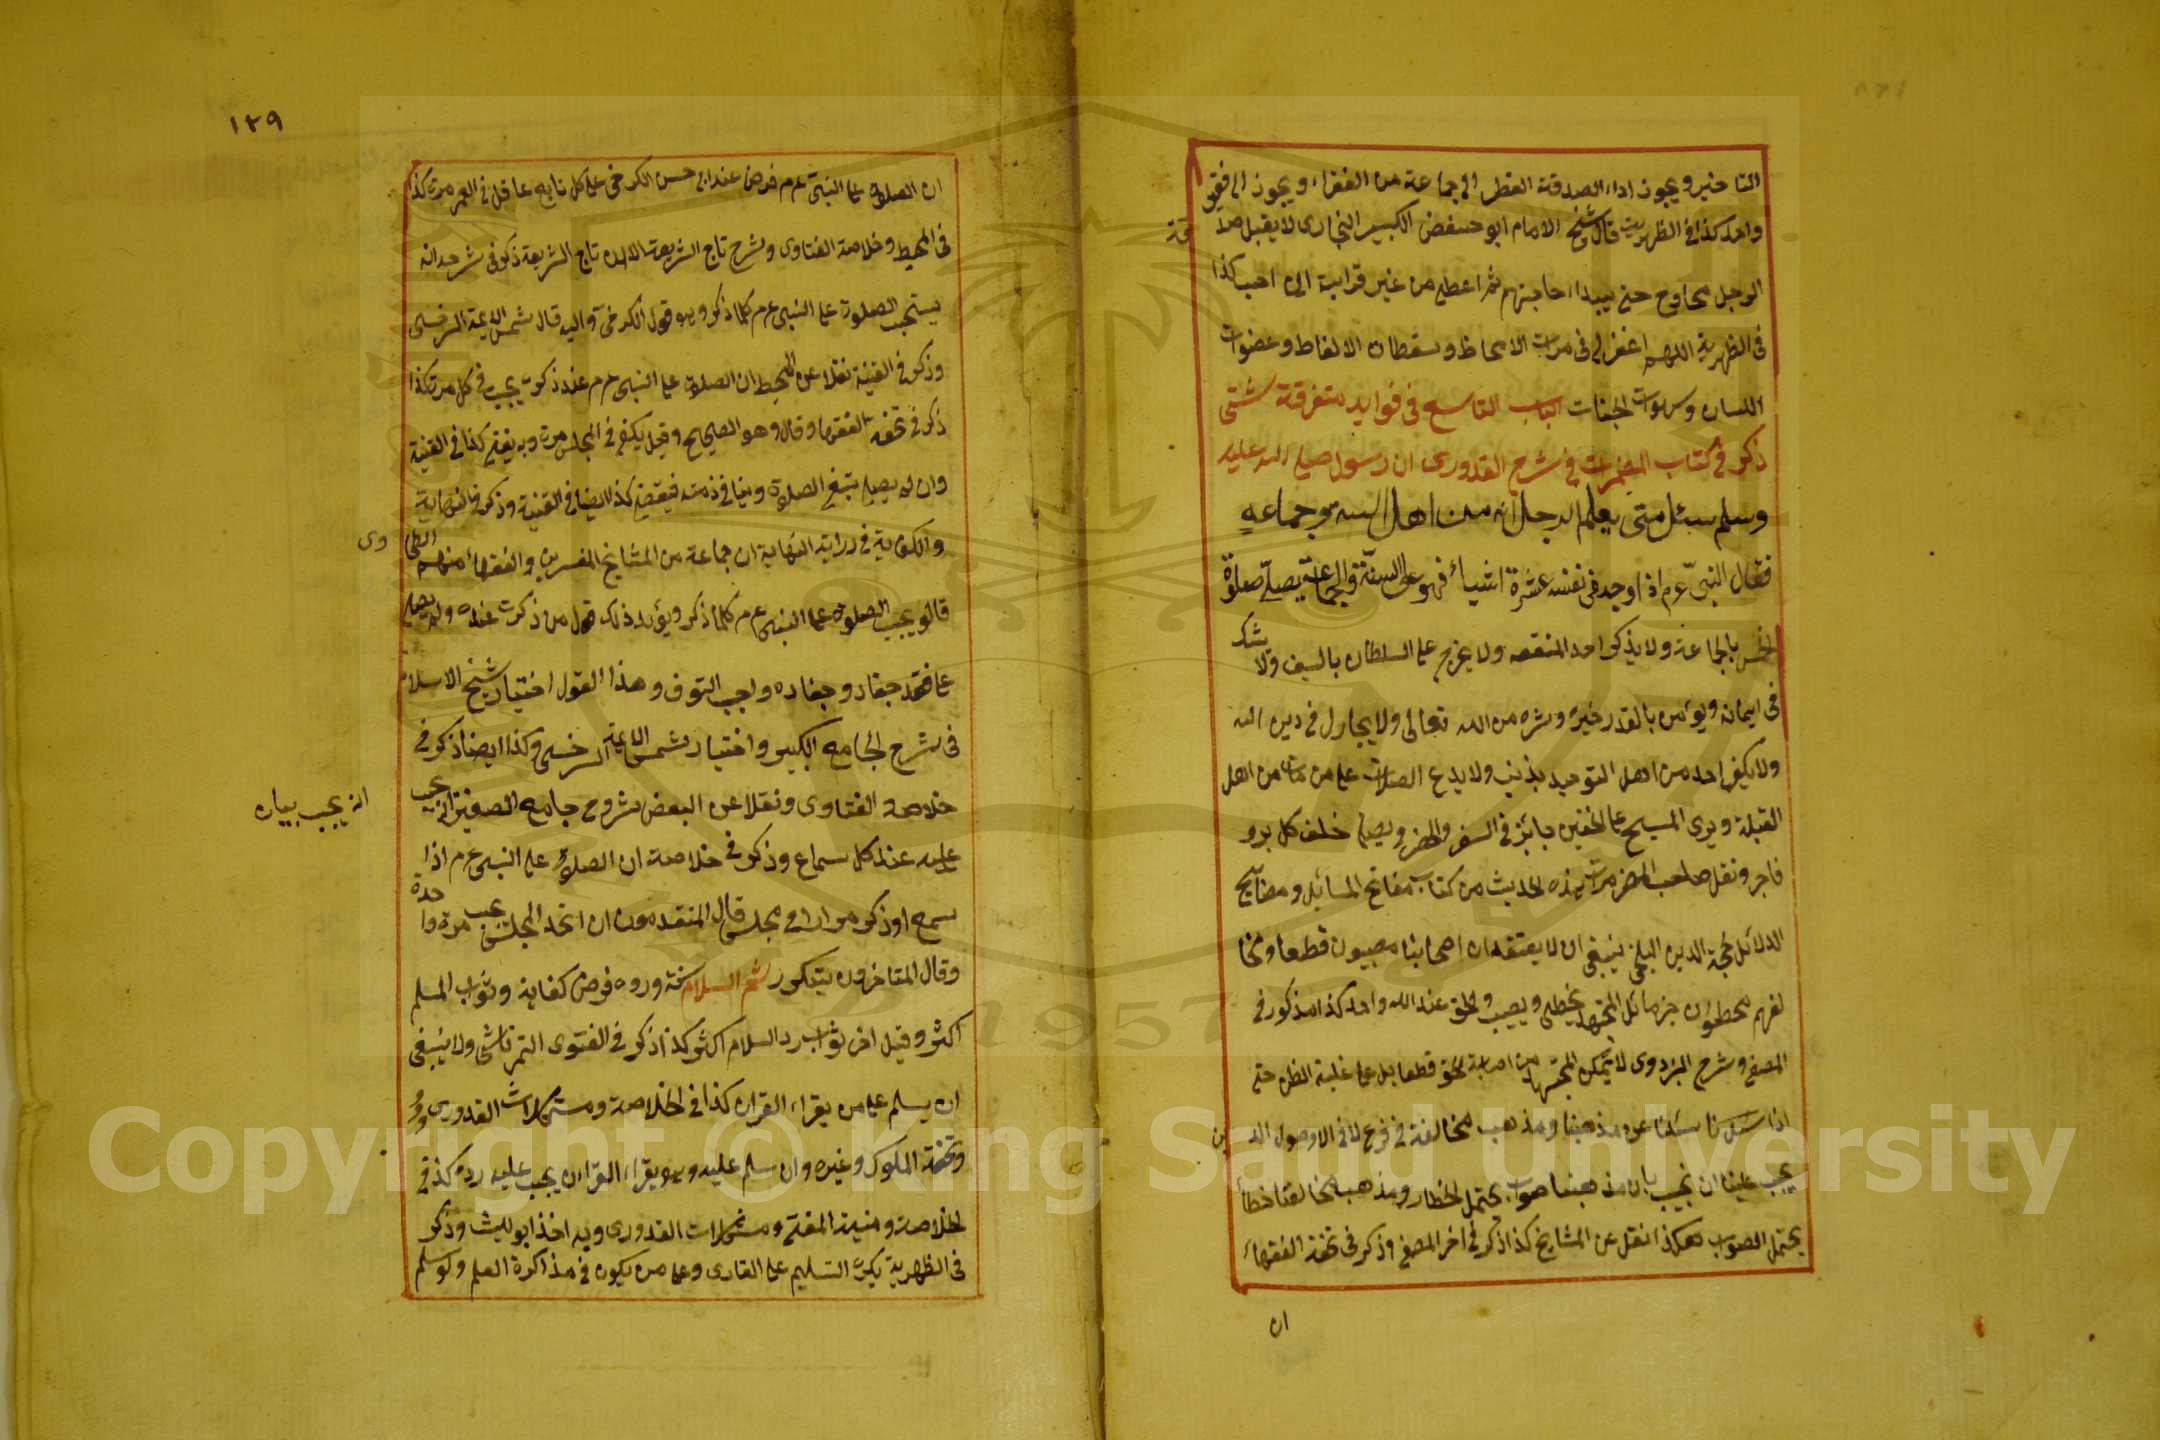 التاخير ويجوز اداء الصدقة الفطر الى جماعة من الفقراء ويجوز الى فقير
واحد كذا في الظهرية قال شيخ الامام ابو حفص الكبير البخارى لا يقبل صد قة
الرجل محاويج حتى يبداء حاجتهم ثم اعطى من غير قرابة الى احب كذا
في الظهرية اللهم اغفر لى في مرمات الالحاظ وسقطات الالفاظ وعضوات
اللسان وسهوات الجنات الباب التاسع في فوايد متفرقة شتى
ذكر في كتاب المضمرات في شرح القدورى ان رسول صلى الله عليه
وسلم سئل متى يعلم الرجل انه من اهل السنة وجماعة
فقال النبى عم اذا وجد في نفسه عشرة اشياء فهو على السنة والجماعة يصلى صلوة
الخمس بالجماعة ولا يذكر احد المنقصه ولا يخرج على السلطان بالسيف ولا يشك
في ايمانه ويؤمن بالقدر خيره وشره من الله تعالى ولا يجادل في دين الله
ولا يكفر احد من اهل التوحيد بذنب ولا يدع الصلات على من مات من اهل
القبلة ويرى المسح على الخفين جائز في السفر والحضر ويصلى خلف كل بر و
فاجر ونقل صاحب المضمرات هذه الحديث من كتاب مفاتح المسائل ومصابيح
الدلائل لحجة الدين البلخى ينبغى ان لا يعتقد ان اصحابنا مصيبون قطعا ومخا
لفهم مخطئون جزما بل المجتهد يخطى ويصيب والحق عند الله واحد كذا مذكور في
المصفى وشرح البزدوى لا يتمكن المجتهد من اصابة الحق قطعا بل على غلبة الظن حتى
اذا سئلنا عن مذهبنا ومذهب مخالفنا في فرع لا في الاوصول الد ين
يجب علينا ان نجيب بان مذهبنا صواب يحتمل الخطا ومذهب مخالفنا خطأ
يحتمل الصواب هكذا نقل عن المشايخ كذا ذكر في اخر المصفى وذكر في تحفة الفقهاء
ان
١٣٩
ان الصلوة على النبى عم فرض عند ابى حسن الكرخى على كل بالغ عاقل في العمر مرة كذا
في المحيط وخلاصة الفتاوى وشرح تاج الشريعة الا ان تاج الشريعة ذكر في شرحه انه
يستحب الصلوة على النبى عم كلما ذكر وهو قول الكرخى واليه قال شمس الايمة السرخسى
وذكر في القنية نقلا عن المحيط ان الصلوة على النبى عم عند ذكره يجب في كل مرة كذا
ذكر في تحفة الفقهاء وقال وهو الصحيح وقيل يكفى في المجلس مرة وبه يفتى كذا في القنية
وان لم يصلى تبقى الصلوة دينا في ذمته فيقضى كذا ايضا في القنية وذكر في النهاية
والكفاية في دراية النهاية ان جماعة من المشايخ المفسرين والفقهاء منهم الطحا وى
قالو يجب الصلوة على النبى عم كلما ذكر ويؤيد ذلك قول من ذكرت عنده ولم يصلى
على فقد جفاد وجفاده واجب التوف وهذا القول اختيار شيخ الاسلام
في شرح الجامع الكبير واختيار شمس الايمة السرخسى وكذا ايضا ذكر في
خلاصة الفتاوى ونقلا عن البعض شروح جامع الصغير انه يجب
انه يجب بيان
عليه عند كل سماع وذكر في خلاصة ان الصلوة على النبى عم اذا
سمع او ذكر مرارا في مجلس قال المتقدمون ان اتحد المجلس يجب مرة واحدة
وقال المتاخرون يتكرر ثم السلام سنة ورده فرض كفاية وثواب المسلم
اكثر وقيل اخر ثواب رد السلام اكثر كذا ذكر في الفتوى التمرتاشى ولا ينبغى
ان يسلم على من يقراء القران كذا في الخلاصة ومشكلات القدورى
وتحفة الملوك وغيره وان سلم عليه وهو يقراء القراءن يجب عليه رده كذا في
الخلاصة ومنية المفتى ومشكلات القدورى وبه اخذ ابو ليث وذكر
في الظهرية يكره التسليم على القارى وعلى من يكون في مذاكرة العلم ولو سلم
Copyright © King Saud University
1957